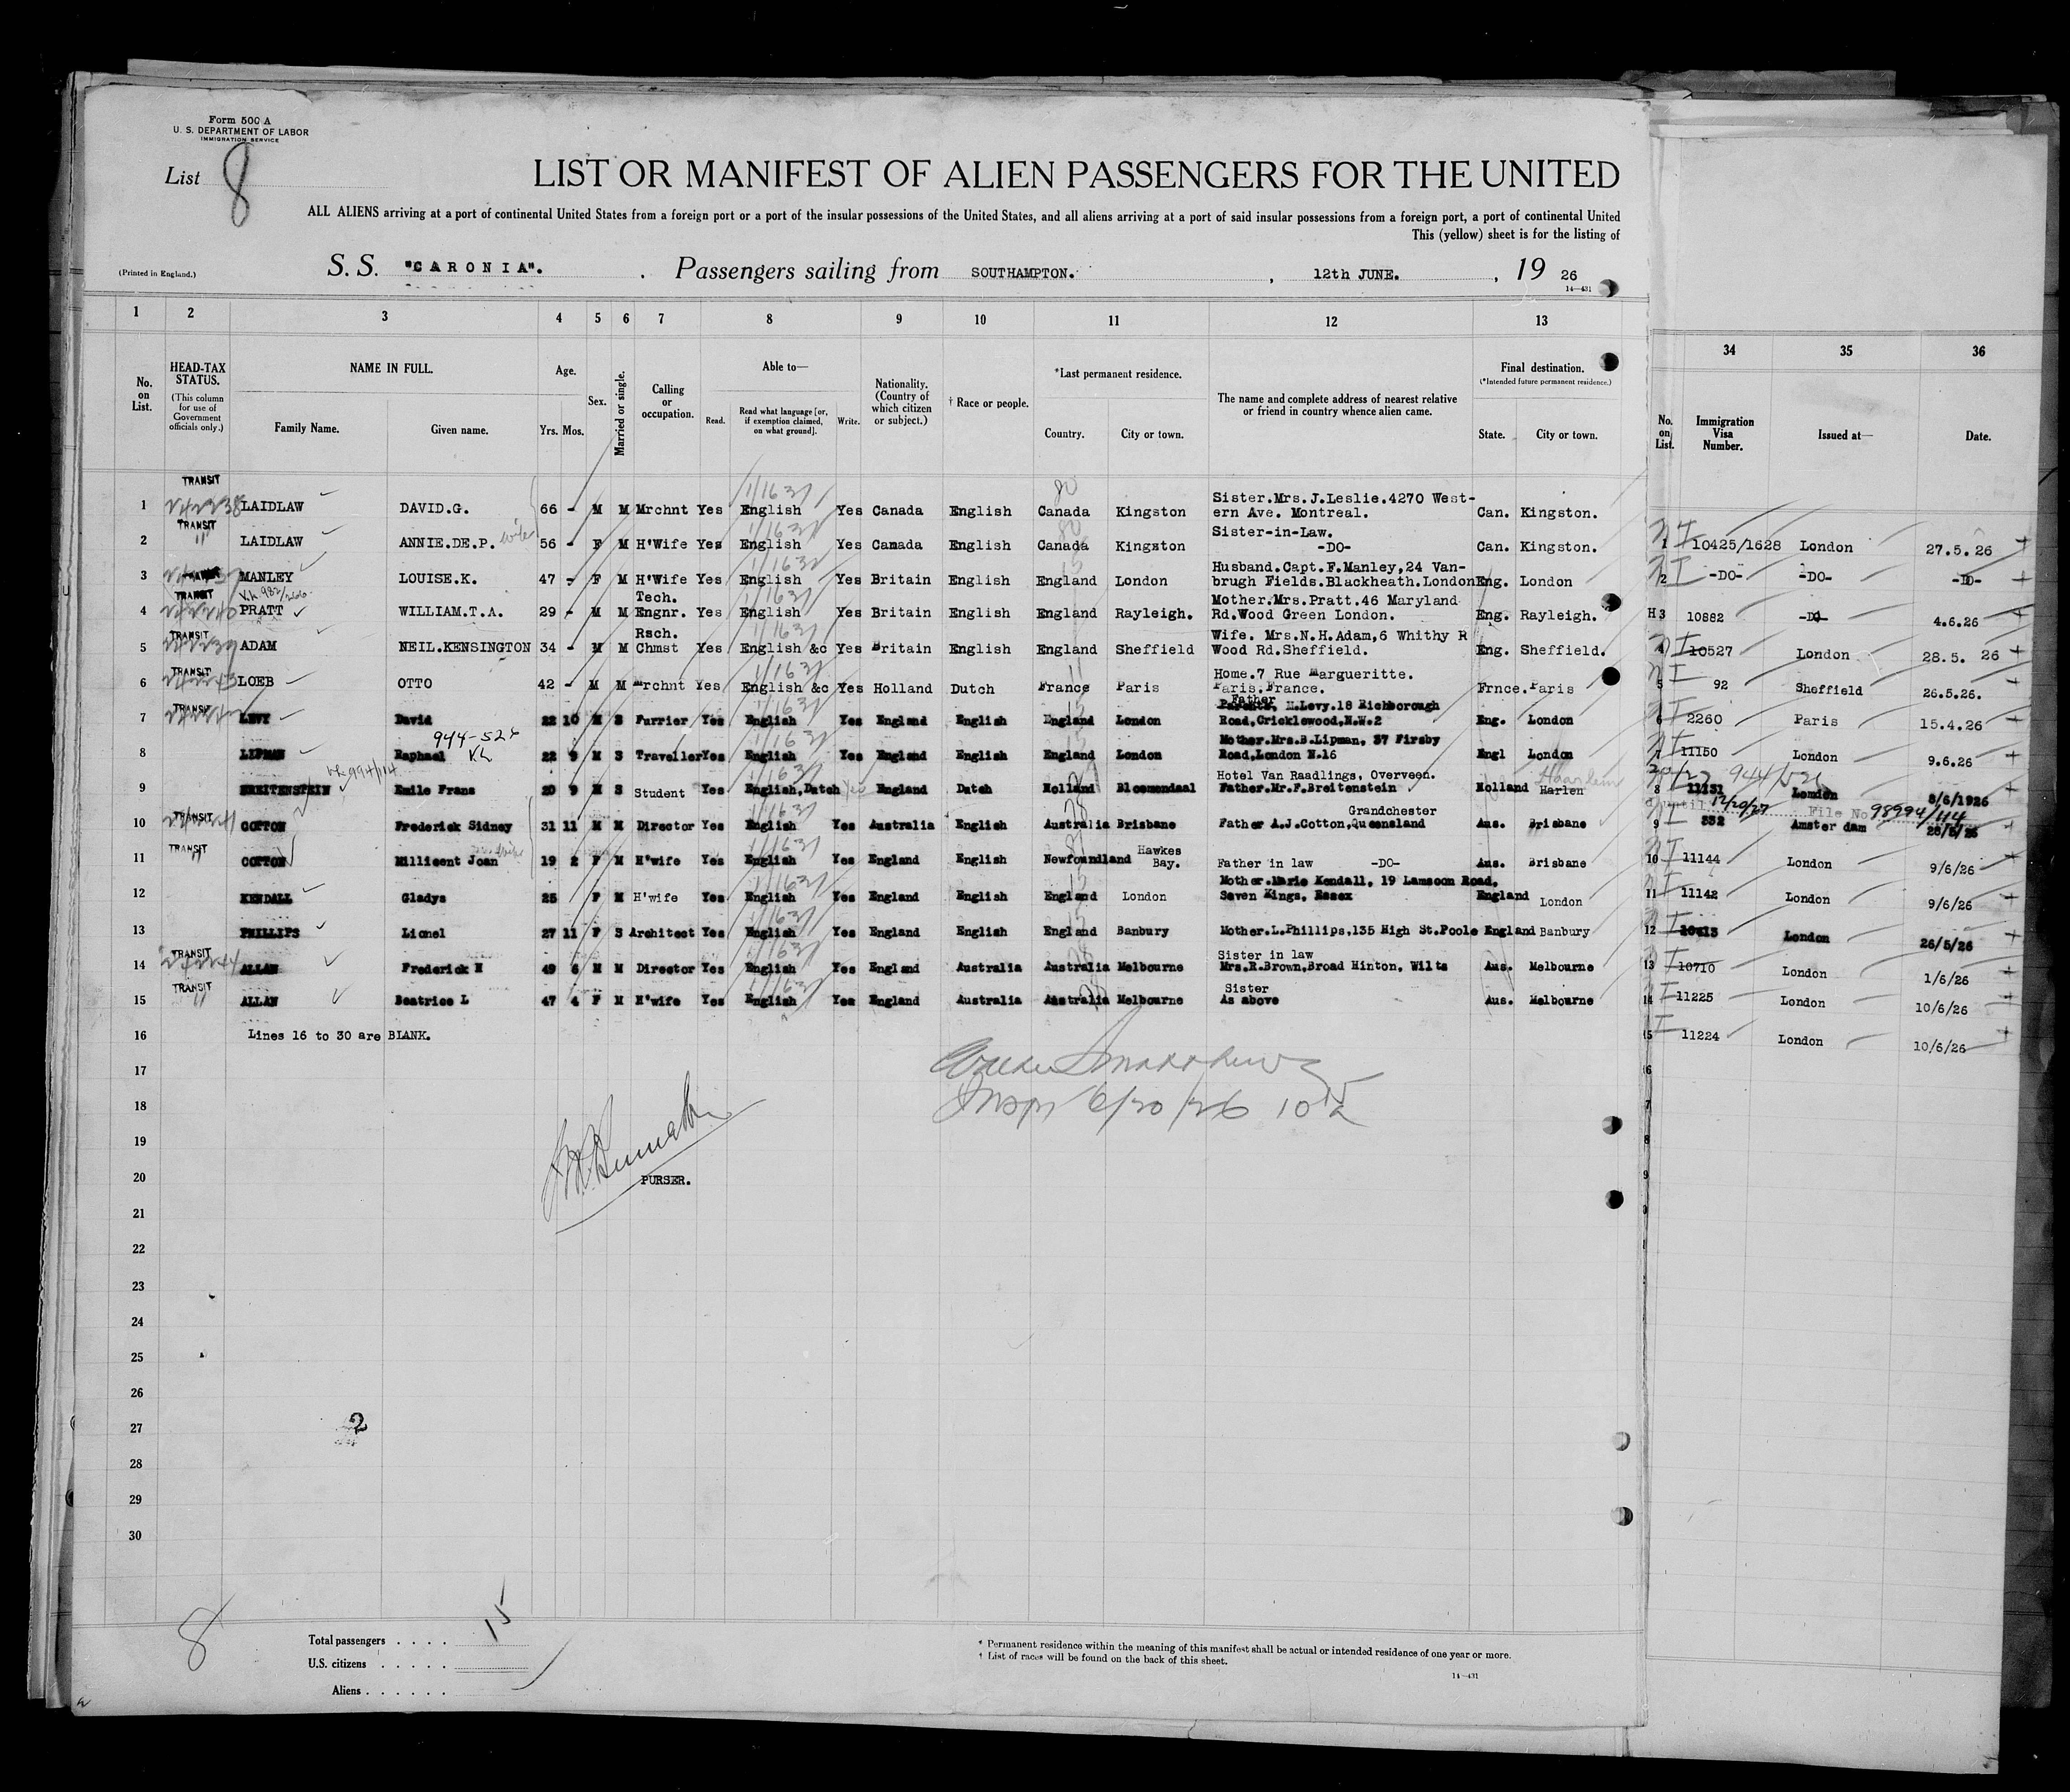 Form 500 A
U. S. DEPARTMENT OF LABOR
IMMIGRATION SERVICE
List 8
LIST OR MANIFEST OF ALIEN PASSENGERS FOR THE UNITED
ALL ALIENS arriving at a port of continental United States from a foreign port or a port of the insular possessions of the United States, and all aliens arriving at a port of said insular possessions from a foreign port, a port of continental United
This (yellow) sheet is for the listing of
(Printed in England.)
S. S. "CARONIA". , Passengers sailing from SOUTHAMPTON. , 12th JUNE. , 19 26
14—431
1 2 3 4 5 6 7 8 9 10 11 12 13
34 35 36
No. on List.
HEAD-TAX STATUS.
(This column for use of Government officials only.)
NAME IN FULL.
Family Name. Given name.
Age.
Yrs. Mos.
Sex.
Married or single.
Calling or occupation.
Able to—
Read. Read what language [or, if exemption claimed, on what ground]. Write.
Nationality. (Country of which citizen or subject.)
† Race or people.
*Last permanent residence.
Country. City or town.
The name and complete address of nearest relative or friend in country whence alien came.
Final destination.
(*Intended future permanent residence.)
State. City or town.
No. on List.
Immigration Visa Number.
Issued at—
Date.
1 TRANSIT LAIDLAW DAVID.G. 66 - M M Mrchnt Yes English Yes Canada English Canada Kingston Sister.Mrs.J.Leslie.4270 West-
ern Ave. Montreal. Can. Kingston.
2 TRANSIT " LAIDLAW ANNIE.DE.P. wife 56 - F M H'Wife Yes English Yes Canada English Canada Kingston Sister-in-Law.
-DO- Can. Kingston.
3 MANLEY LOUISE.K. 47 - F M H'Wife Yes English Yes Britain English England London Husband.Capt.F.Manley,24 Van-
brugh Fields.Blackheath.London Eng. London
4 TRANSIT PRATT WILLIAM.T.A. 29 - M M Tech. Engnr. Yes English Yes Britain English England Rayleigh. Mother.Mrs.Pratt.46 Maryland
Rd.Wood Green London. Eng. Rayleigh.
5 TRANSIT ADAM NEIL.KENSINGTON 34 - M M Rsch. Chmst Yes English &c Yes Britain English England Sheffield Wife. Mrs.N.H.Adam,6 Whithy R
Wood Rd.Sheffield. Eng. Sheffield.
6 TRANSIT LOEB OTTO 42 - M M Mrchnt Yes English &c Yes Holland Dutch France Paris Home.7 Rue Margueritte.
Paris.France. Frnce. Paris
7 TRANSIT LEVY David 22 10 M S Furrier Yes English Yes England English England London Father M.Levy.18 Richborough
Road,Cricklewood,N.W.2 Eng. London
944-526
8 LIPMAN Raphael 22 9 M S Traveller Yes English Yes England English England London Mother.Mrs.B.Lipman, 37 Firsby
Road,London N.16 Engl London
9 BREITENSTEIN Emile Frans 20 9 M S Student Yes English,Dutch Yes England Dutch Holland Bloemendaal Hotel Van Raadlings, Overveen.
Father.Mr.F.Breitenstein Holland Harlen Haarlem
10 TRANSIT COTTON Frederick Sidney 31 11 M M Director Yes English Yes Australia English Australia Brisbane Grandchester
Father A.J.Cotton,Queensland Aus. Brisbane
11 TRANSIT " COTTON Millicent Joan 19 2 F M H'wife Yes English Yes England English Newfoundland Hawkes Bay. Father in law -DO- Aus. Brisbane
12 KENDALL Gladys 25 F M H'wife Yes English Yes England English England London Mother.Marie Kendall, 19 Lamsoon Road,
Seven Kings, Essex England London
13 PHILLIPS Lionel 27 11 F S Architect Yes English Yes England English England Banbury Mother.L.Phillips,135 High St.Poole England Banbury
14 TRANSIT ALLAN Frederick H 49 6 M M Director Yes English Yes England Australia Australia Melbourne Sister in law
Mrs.R.Brown,Broad Hinton, Wilts Aus. Melbourne
15 TRANSIT " ALLAN Beatrice L 47 4 F M H'wife Yes English Yes England Australia Australia Melbourne Sister
As above Aus. Melbourne
16 Lines 16 to 30 are BLANK.
17
18
19
20
21
22
23
24
25
26
27
28
29
30
Insp 6/20/26
PURSER.
2
1 10425/1628 London 27.5.26
2 -DO- -DO- -DO-
3 10882 -DO- 4.6.26
4 10527 London 28.5. 26
5 92 Sheffield 26.5.26.
6 2260 Paris 15.4.26
7 11150 London 9.6.26
944/526
8 11131 London 8/6/1926
12/20/27 File No 98994/114
9 332 Amster dam 28/5/26
10 11144 London 9/6/26
11 11142 London 9/6/26
12 10413 London 26/5/26
13 10710 London 1/6/26
14 11225 London 10/6/26
15 11224 London 10/6/26
8
Total passengers . . . . 15
U.S. citizens . . . . .
Aliens . . . . . .
* Permanent residence within the meaning of this manifest shall be actual or intended residence of one year or more.
† List of races will be found on the back of this sheet.
14—431